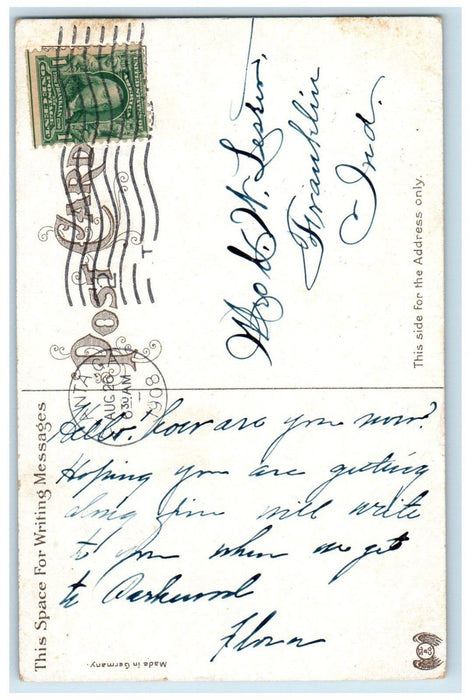 POST CARD
This side for the Address only.
This Space For Writing Messages
AUG 26
630 AM
1908
T
Franklin
Ind.
Hello! how are you now?
Hoping you are getting
along fine will write
to you when we get
to Parkwood
Flora
Made in Germany.